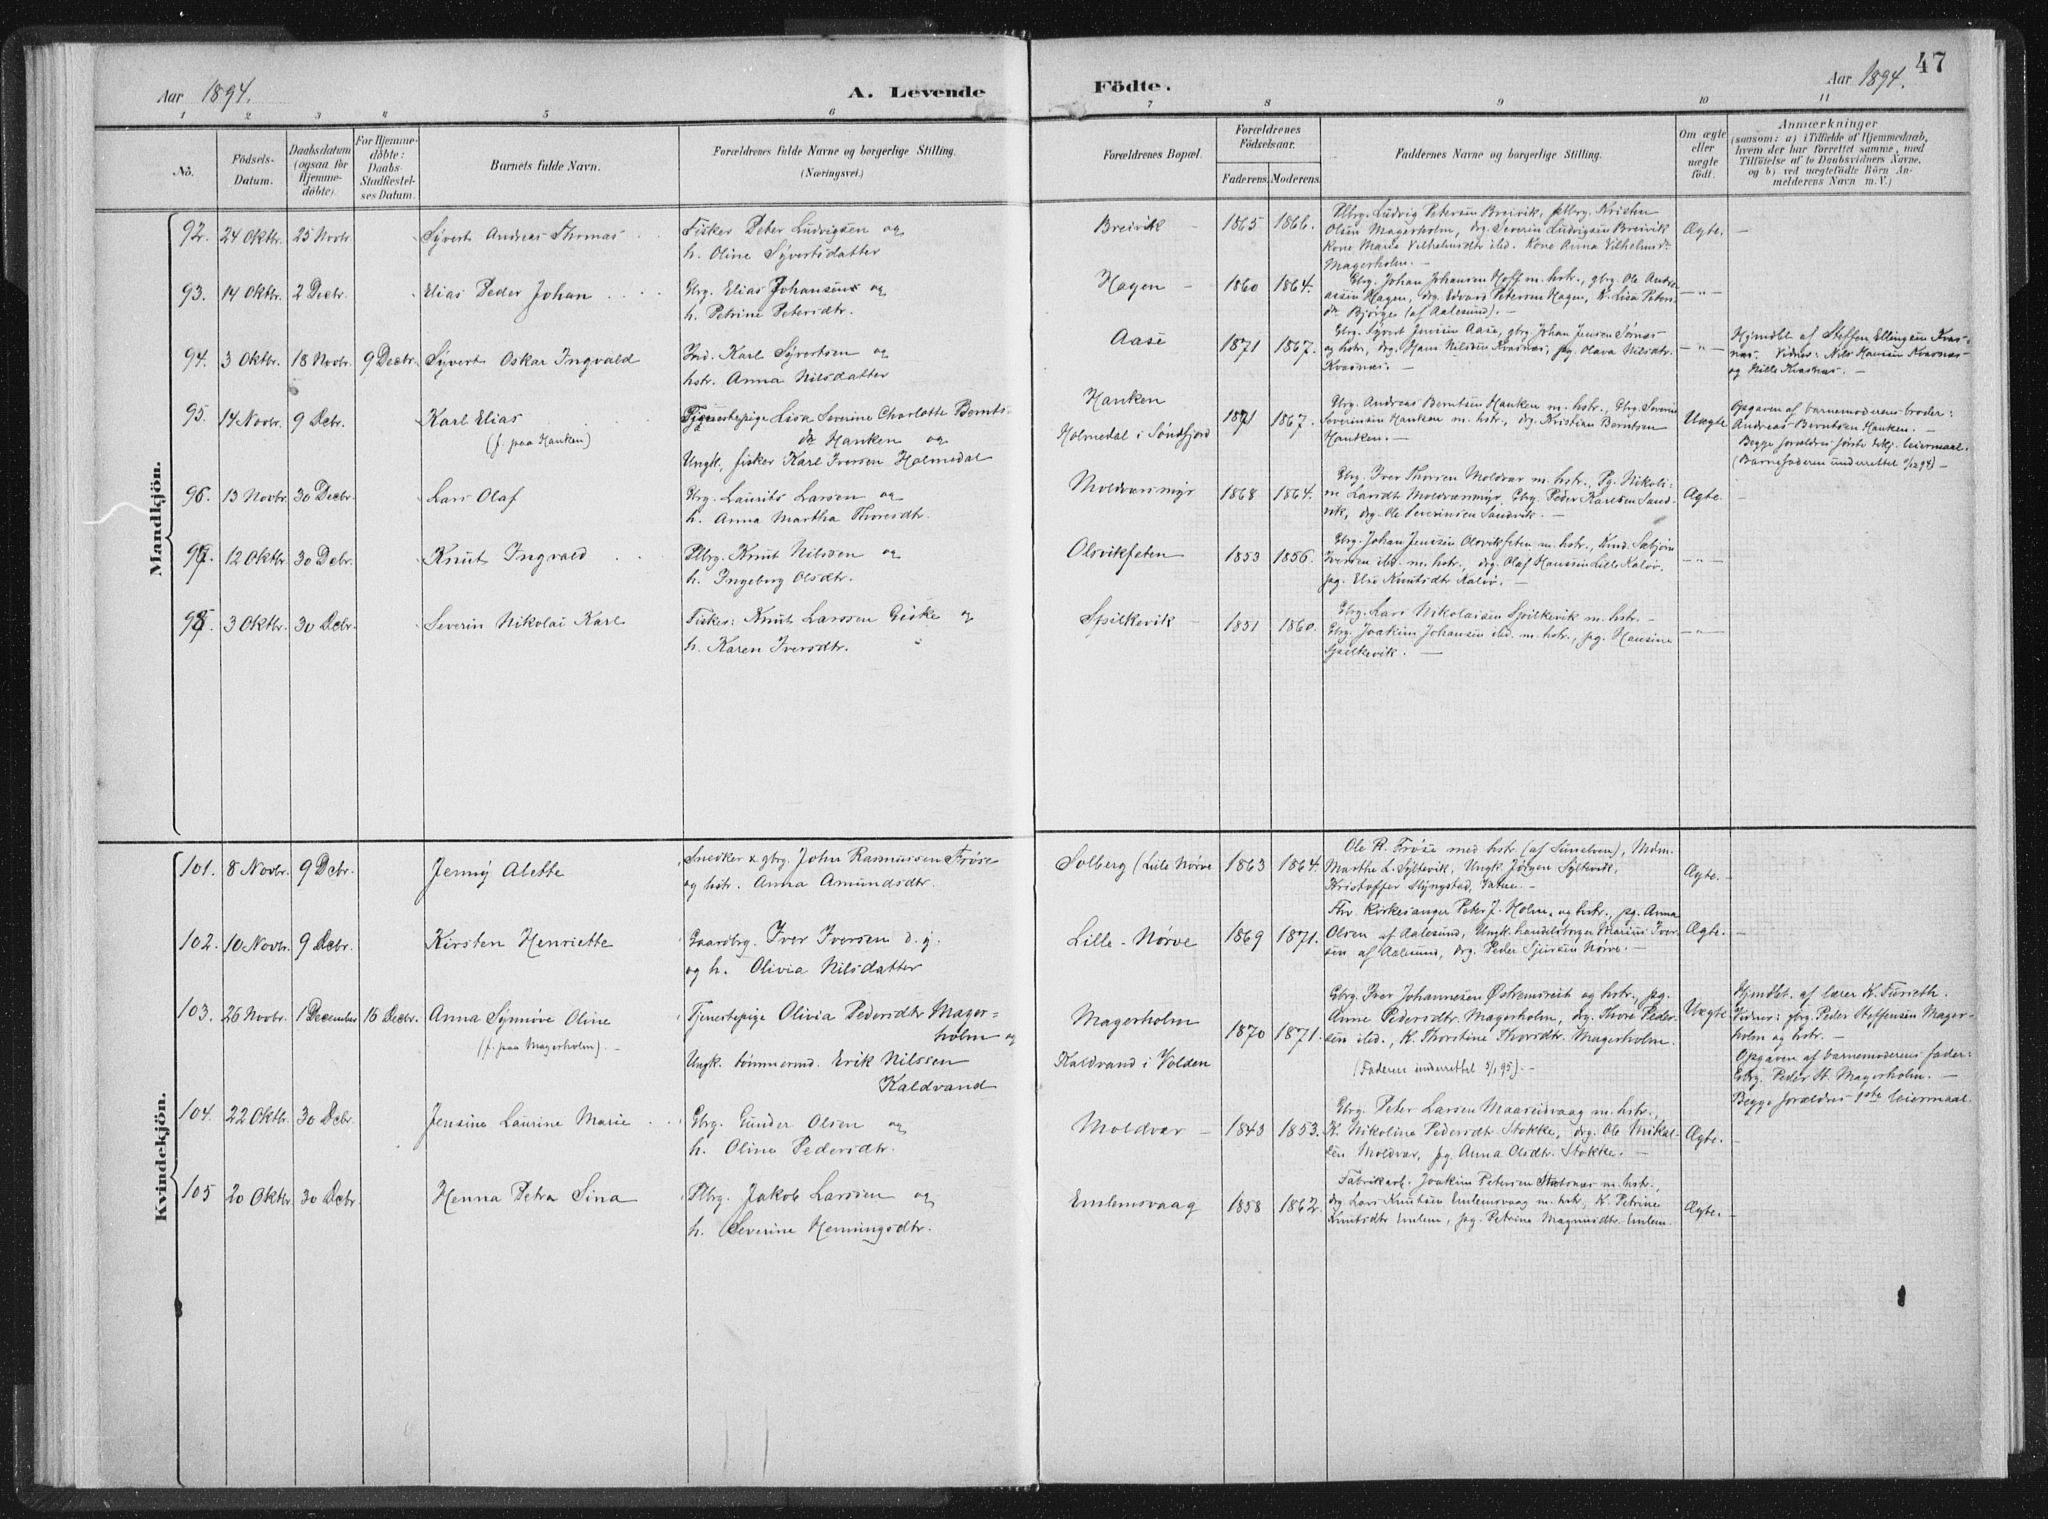 Aar 1894. A. Levende
Födte. Aar 1894. 47
1 2 3 4 5 6
7 8 9 10 11
No.
Födsels-
Datum.
Daabsdatum
(ogsaa for
Hjemme-
döbte).
For Hjemme-
döbte:
Daabs-
Stadfæstel-
ses Datum.
Barnets fulde Navn.
Forældrenes fulde Navne og borgerlige Stilling.
(Næringsvei.)
Forældrenes Bopæl.
Forældrenes
Födselsaar.
Faderens. Moderens.
Faddernes Navne og borgerlige Stilling.
Om ægte
eller
uægte
födt.
Anmærkninger
(saasom: a) i Tilfælde af Hjemmedaab,
hvem der har forrettet samme, med
Tilföielse af to Daabsvidners Navne,
og b) ved uægtefödte Börn An-
melderens Navn m. V.)
Mandkjön.
92. 24 Oktbr. 25 Novbr. Syvert Andreas Thomas
Fisker Peter Ludvigsen og
h. Oline Syvertsdatter
Breivik 1865 1866.
Plbrg. Ludvig Petersen Breivik, plbrg. Kristen
Olsen Magerholm, drg. Severin Ludvigsen Breivik
Kone Marie Vilhelmsdtr ibd. Kone Anna Vilhelmsdtr
Magerholm. —
Ægte. —
93. 14 Oktbr. 2 Decbr. Elias Peder Johan
Gbrg. Elias Johansen og
h. Petrine Petersdtr.
Hagen 1860 1864.
Gbrg. Johan Johansen Hoff m. hstr., gbrg. Ole Andre-
assen Hagen, drg. Edvard Petersen Hagen, K. Lisa Peters-
dtr Bjørge (af Aalesund). —
—"—
94. 3 Oktbr. 18 Novbr. 9 Decbr. Syvert Oskar Ingvald
Ind. Karl Syvertsen og
hstr. Anna Nilsdatter
Aase 1871 1867.
Gbrg. Syvert Jensen Aase, gbrg. Johan Jensen Sørnæs
og hstr., drg. Hans Nilsen Kvasnæs, pg. Olava Nilsdtr.
Kvasnæs. —
—"—
Hjmdbt af Steffen Ellingsen Kvas-
næs. Vidner: Nils Hansen Kvasnæs
og Nille Kvasnæs. —
95. 14 Novbr. 9 Dcbr. Karl Elias
(f. paa Hanken)
Tjenestepige Lisa Severine Charlotte Bernts-
dtr Hanken og
Ungk. fisker Karl Iversen Holmedal
Hanken
Holmedal i Søndfjord
1871 1867.
Gbrg. Andreas Berntsen Hanken m. hstr., Gbrg. Severin
Severinsen Hanken m. hstr., drg. Kristian Berntsen
Hanken. —
Uægte
Opgaven af barnemoderens broder:
Andreas Berntsen Hanken. —
Begge forældres første leiermaal.
(Barnefaderen underrettet
96. 13 Novbr. 30 Decbr. Lars Olaf
Gbrg. Laurits Larsen og
h. Anna Martha Thoresdtr.
Moldværsmyr 1868 1864.
Gbrg. Iver Thorsen Moldvær m. hstr., Pg. Nikoli-
ne Larsdt Moldværsmyr, Gbrg. Peder Karlsen Sand-
vik, drg. Ole Severinsen Sandvik. —
Ægte —
97. 12 Oktbr. 30 Dcbr. Knut Ingvald
Plbrg. Knut Nilssen og
h. Ingeborg Olsdtr.
Olsvikfeten 1853 1856.
Gbrg. Johan Jenssen Olsvikfeten m. hstr.,
Iversen ibd. m. hstr., drg. Olaf Hanssen Lille Kalvø,
pg. Elie Knutsdt Kalvø. —
—"—
98. 3 Oktbr. 30 Dcbr. Severin Nikolai Karl
Fisker: Knut Larssen Giske og
h. Karen Iversdtr.
Spilkevik 1851 1860.
Gbrg. Lars Nikolaisen Spilkevik m. hstr. —
Gbrg. Joakim Johansen ibd. m. hstr., pg. Hansine
Spilkevik. —
—"—
Kvindekjön.
101. 8 Novbr. 9 Dcbr. Jenny Alette
Snedker & gbrg. John Rasmussen Frøse
og hstr. Anna Amundsdtr.
Solberg (Lille Nørve 1863 1864.
Ole R. Frøse med hstr. (af Sunelven), Mdm.
Marthe L. Syltevik, Ungk. Jørgen Syltevik,
Kristoffer Slyngstad, Vatne. —
Ægte. —
102. 10 Novbr. 9 Dcbr. Kirsten Henriette
Gaardbrg. Iver Iversen d. y.
og h. Olivia Nilsdatter
Lille-Nørve 1869 1871.
Fhv. Kirkesanger Peter J. Holm, og hstr., pg. Anna
Olsen af Aalesund, Ungk. handelsborger Marius Iver-
sen af Aalesund, drg. Peder Sjursen Nørve. —
Ægte. —
103. 26 Novbr. 1 December 16 Decbr. Anna Synnøve Oline
(f. paa Magerholm). —
Tjenestepige Olivia Pedersdtr Mager-
holm og
Ungk. tømmermd. Erik Nilssen
Kaldvand
Magerholm
Kaldvand i Volden
1870 1871.
Gbrg. Iver Johannesen Østremsreit og hstr., pg.
Anne Pedersdtr Magerholm, drg. Thore Peder-
sen ibd., K. Thorstine Thorsdtr. Magerholm.
(Faderen underrettet 3/1 95). —
Uægte
Hjmdbt. af lærer K. Furseth.
Vidner: gbrg. Peder Steffensen Mager-
holm og hstr. —
Opgaven af barnemoderens fader:
Gbrg. Peder St. Magerholm. —
Begge forældres 1ste leiermaal.
104. 22 Oktbr. 30 Dcbr. Jensine Laurine Marie
Gbrg. Gunder Olsen og
h. Oline Pedersdtr.
Moldvær 1843 1853.
Gbrg. Peter Larsen Maaseidvaag m. hstr.,
K. Nikoline Pedersdt Stokke, drg. Ole Mikal-
sen Moldvær, pg. Anna Olsdtr. Stokke. —
Ægte. —
105 20 Oktbr. 30 Dcbr Henna Petra Sina
Plbrg. Jakob Larssen og
h. Severine Henningsdtr.
Emlemsvaag 1858 1862.
Fabrikarb. Joakim Petersen m. hstr.,
drg. Lars Knutsen Emlemsvaag m. hstr., K. Petrine
Knutsdtr Emlem, pg. Petrine Magnusdtr. Emlem.
Ægte. —